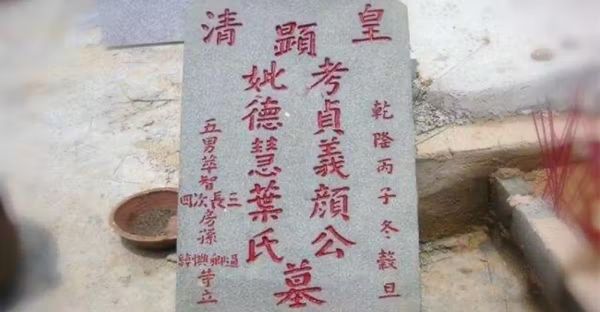 皇清
乾隆丙子冬穀旦
顯
考貞義顏公
妣德慧葉氏
墓
五男萃智
三長次四
房孫
等立